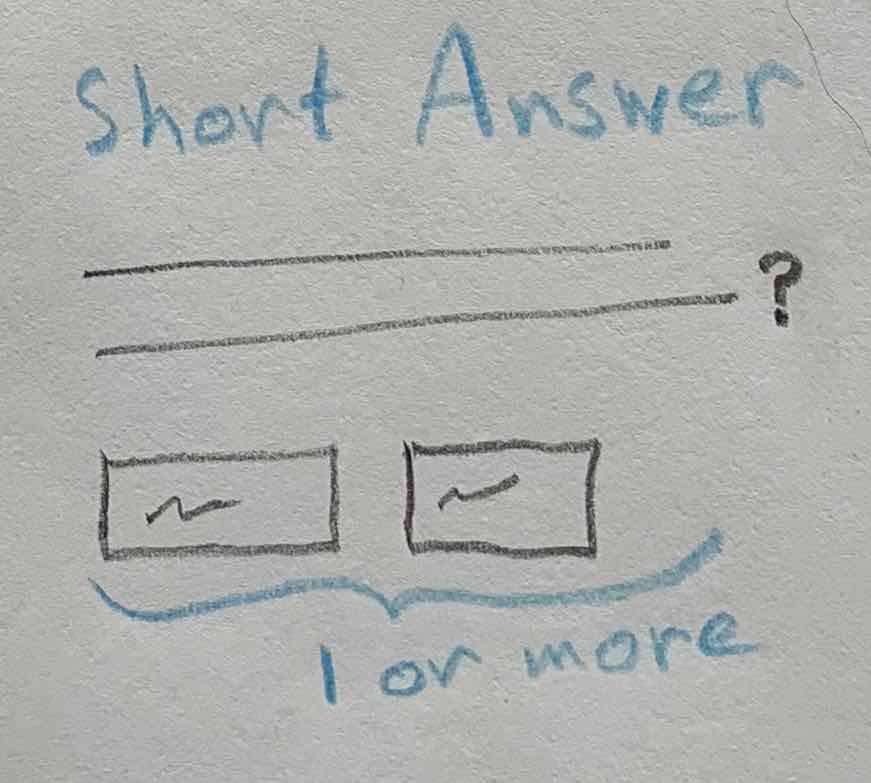 Short Answer
?
1 or more